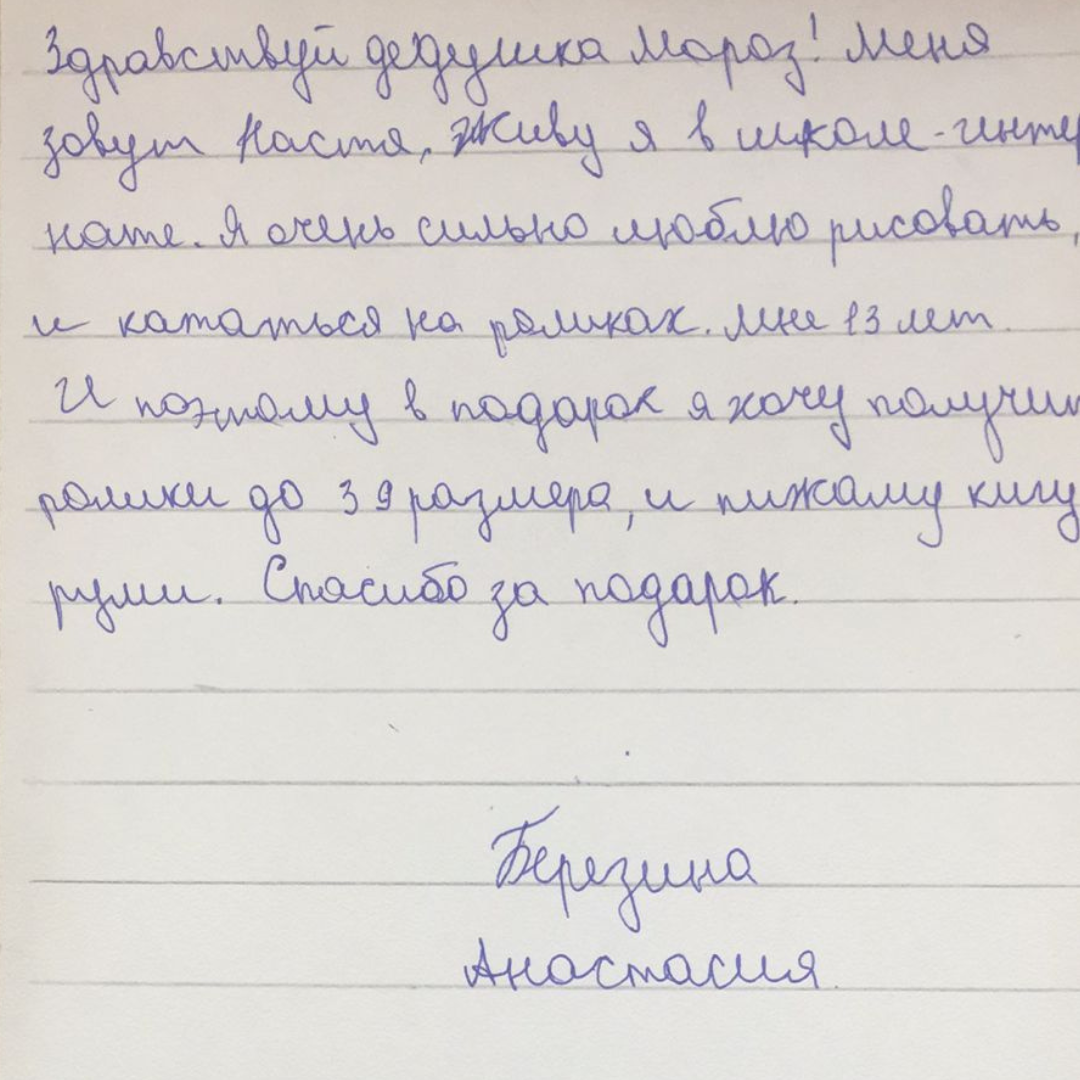 Здравствуй дедушка Мороз! Меня
зовут Настя, Живу я в школе-интер
нате. Я очень сильно люблю рисовать,
и кататься на роликах. Мне 13 лет.
И поэтому в подарок я хочу получит
ролики до 39 размера, и пижаму кигу
руми. Спасибо за подарок.
Березина
Анастасия